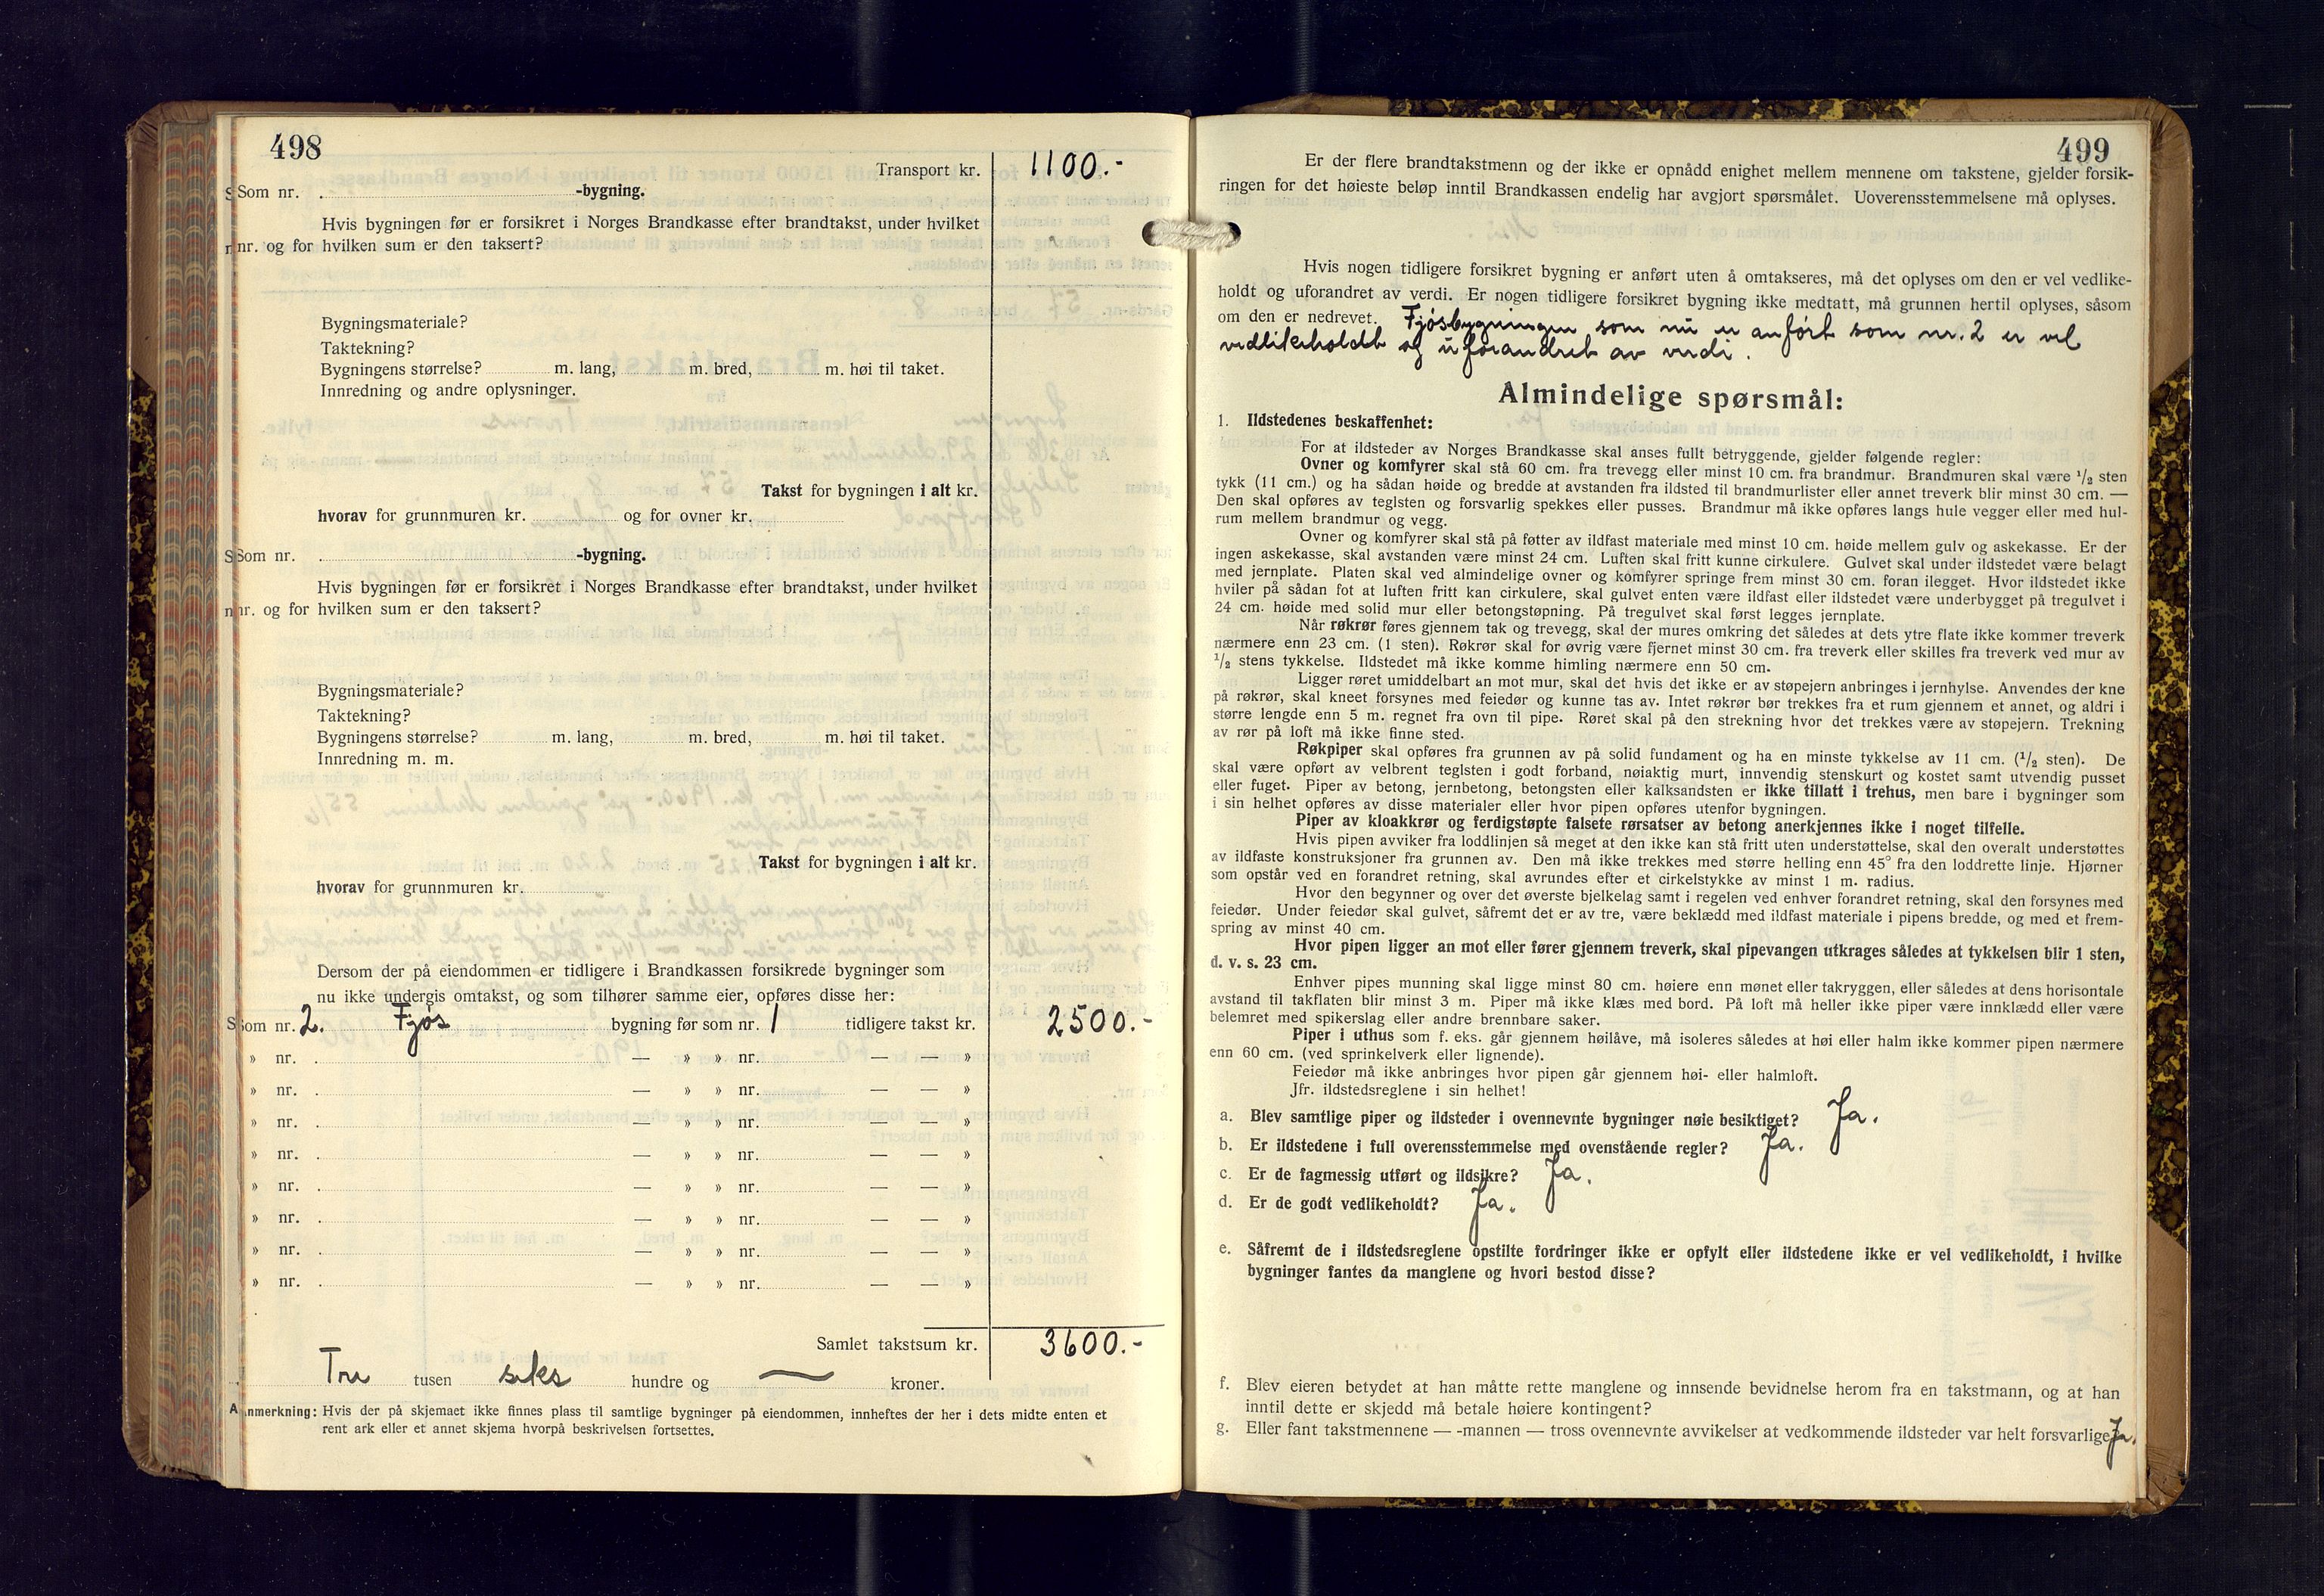 498
Transport kr. 1100.-
Som nr. -bygning.
Hvis bygningen før er forsikret i Norges Brandkasse efter brandtakst, under hvilket
nr. og for hvilken sum er den taksert?
Bygningsmateriale?
Taktekning?
Bygningens størrelse? m. lang, m. bred, m. høi til taket.
Innredning og andre oplysninger.
Takst for bygningen i alt kr.
hvorav for grunnmuren kr. og for ovner kr.
Som nr. -bygning.
Hvis bygningen før er forsikret i Norges Brandkasse efter brandtakst, under hvilket
nr. og for hvilken sum er den taksert?
Bygningsmateriale?
Taktekning?
Bygningens størrelse? m. lang, m. bred, m. høi til taket.
Innredning m. m.
Takst for bygningen i alt kr.
hvorav for grunnmuren kr.
Dersom der på eiendommen er tidligere i Brandkassen forsikrede bygninger som
nu ikke undergis omtakst, og som tilhører samme eier, opføres disse her:
Som nr. 2. Fjøs bygning før som nr. 1 tidligere takst kr. 2500.-
» nr. — » » nr. — — »
» nr. — » » nr. — — »
» nr. — » » nr. — — »
» nr. — » » nr. — — »
» nr. — » » nr. — — »
» nr. — » » nr. — — »
» nr. — » » nr. — — »
» nr. — » » nr. — — »
Samlet takstsum kr. 3600.-
Tre tusen seks hundre og — kroner.
Anmerkning: Hvis der på skjemaet ikke finnes plass til samtlige bygninger på eiendommen, innheftes der her i dets midte enten et
rent ark eller et annet skjema hvorpå beskrivelsen fortsettes.
499
Er der flere brandtakstmenn og der ikke er opnådd enighet mellem mennene om takstene, gjelder forsik-
ringen for det høieste beløp inntil Brandkassen endelig har avgjort spørsmålet. Uoverensstemmelsene må oplyses.
Hvis nogen tidligere forsikret bygning er anført uten å omtakseres, må det oplyses om den er vel vedlike-
holdt og uforandret av verdi. Er nogen tidligere forsikret bygning ikke medtatt, må grunnen hertil oplyses, såsom
om den er nedrevet. Fjøsbygningen som nu er anført som nr. 2 er vel
vedlikeholdt og uforandret av verdi.
Almindelige spørsmål:
1. Ildstedenes beskaffenhet:
For at ildsteder av Norges Brandkasse skal anses fullt betryggende, gjelder følgende regler:
Ovner og komfyrer skal stå 60 cm. fra trevegg eller minst 10 cm. fra brandmur. Brandmuren skal være 1/2 sten
tykk (11 cm.) og ha sådan høide og bredde at avstanden fra ildsted til brandmurlister eller annet treverk blir minst 30 cm. —
Den skal opføres av teglsten og forsvarlig spekkes eller pusses. Brandmur må ikke opføres langs hule vegger eller med hul-
rum mellem brandmur og vegg.
Ovner og komfyrer skal stå på føtter av ildfast materiale med minst 10 cm. høide mellem gulv og askekasse. Er der
ingen askekasse, skal avstanden være minst 24 cm. Luften skal fritt kunne cirkulere. Gulvet skal under ildstedet være belagt
med jernplate. Platen skal ved almindelige ovner og komfyrer springe frem minst 30 cm. foran ilegget. Hvor ildstedet ikke
hviler på sådan fot at luften fritt kan cirkulere, skal gulvet enten være ildfast eller ildstedet være underbygget på tregulvet i
24 cm. høide med solid mur eller betongstøpning. På tregulvet skal først legges jernplate.
Når røkrør føres gjennem tak og trevegg, skal der mures omkring det således at dets ytre flate ikke kommer treverk
nærmere enn 23 cm. (1 sten). Røkrør skal for øvrig være fjernet minst 30 cm. fra treverk eller skilles fra treverk ved mur av
1/2 stens tykkelse. Ildstedet må ikke komme himling nærmere enn 50 cm.
Ligger røret umiddelbart an mot mur, skal det hvis det ikke er av støpejern anbringes i jernhylse. Anvendes der kne
på røkrør, skal kneet forsynes med feiedør og kunne tas av. Intet røkrør bør trekkes fra et rum gjennem et annet, og aldri i
større lengde enn 5 m. regnet fra ovn til pipe. Røret skal på den strekning hvor det trekkes være av støpejern. Trekning
av rør på loft må ikke finne sted.
Røkpiper skal opføres fra grunnen av på solid fundament og ha en minste tykkelse av 11 cm. (1/2 sten). De
skal være opført av velbrent teglsten i godt forband, nøiaktig murt, innvendig stenskurt og kostet samt utvendig pusset
eller fuget. Piper av betong, jernbetong, betongsten eller kalksandsten er ikke tillatt i trehus, men bare i bygninger som
i sin helhet opføres av disse materialer eller hvor pipen opføres utenfor bygningen.
Piper av kloakkrør og ferdigstøpte falsete rørsatser av betong anerkjennes ikke i noget tilfelle.
Hvis pipen avviker fra loddlinjen så meget at den ikke kan stå fritt uten understøttelse, skal den overalt understøttes
av ildfaste konstruksjoner fra grunnen av. Den må ikke trekkes med større helling enn 45° fra den loddrette linje. Hjørner
som opstår ved en forandret retning, skal avrundes efter et cirkelstykke av minst 1 m. radius.
Hvor den begynner og over det øverste bjelkelag samt i regelen ved enhver forandret retning, skal den forsynes med
feiedør. Under feiedør skal gulvet, såfremt det er av tre, være beklædd med ildfast materiale i pipens bredde, og med et frem-
spring av minst 40 cm.
Hvor pipen ligger an mot eller fører gjennem treverk, skal pipevangen utkrages således at tykkelsen blir 1 sten,
d. v. s. 23 cm.
Enhver pipes munning skal ligge minst 80 cm. høiere enn mønet eller takryggen, eller således at dens horisontale
avstand til takflaten blir minst 3 m. Piper må ikke klæs med bord. På loft må heller ikke piper være innklædd eller være
belemret med spikerslag eller andre brennbare saker.
Piper i uthus som f. eks. går gjennem høilåve, må isoleres således at høi eller halm ikke kommer pipen nærmere
enn 60 cm. (ved sprinkelverk eller lignende).
Feiedør må ikke anbringes hvor pipen går gjennem høi- eller halmloft.
Jfr. ildstedsreglene i sin helhet!
a. Blev samtlige piper og ildsteder i ovennevnte bygninger nøie besiktiget? Ja.
b. Er ildstedene i full overensstemmelse med ovenstående regler? Ja.
c. Er de fagmessig utført og ildsikre? Ja.
d. Er de godt vedlikeholdt? Ja.
e. Såfremt de i ildstedsreglene opstilte fordringer ikke er opfylt eller ildstedene ikke er vel vedlikeholdt, i hvilke
bygninger fantes da manglene og hvori bestod disse?
f. Blev eieren betydet at han måtte rette manglene og innsende bevidnelse herom fra en takstmann, og at han
inntil dette er skjedd må betale høiere kontingent?
g. Eller fant takstmennene — -mannen — tross ovennevnte avvikelser at vedkommende ildsteder var helt forsvarlige Ja.